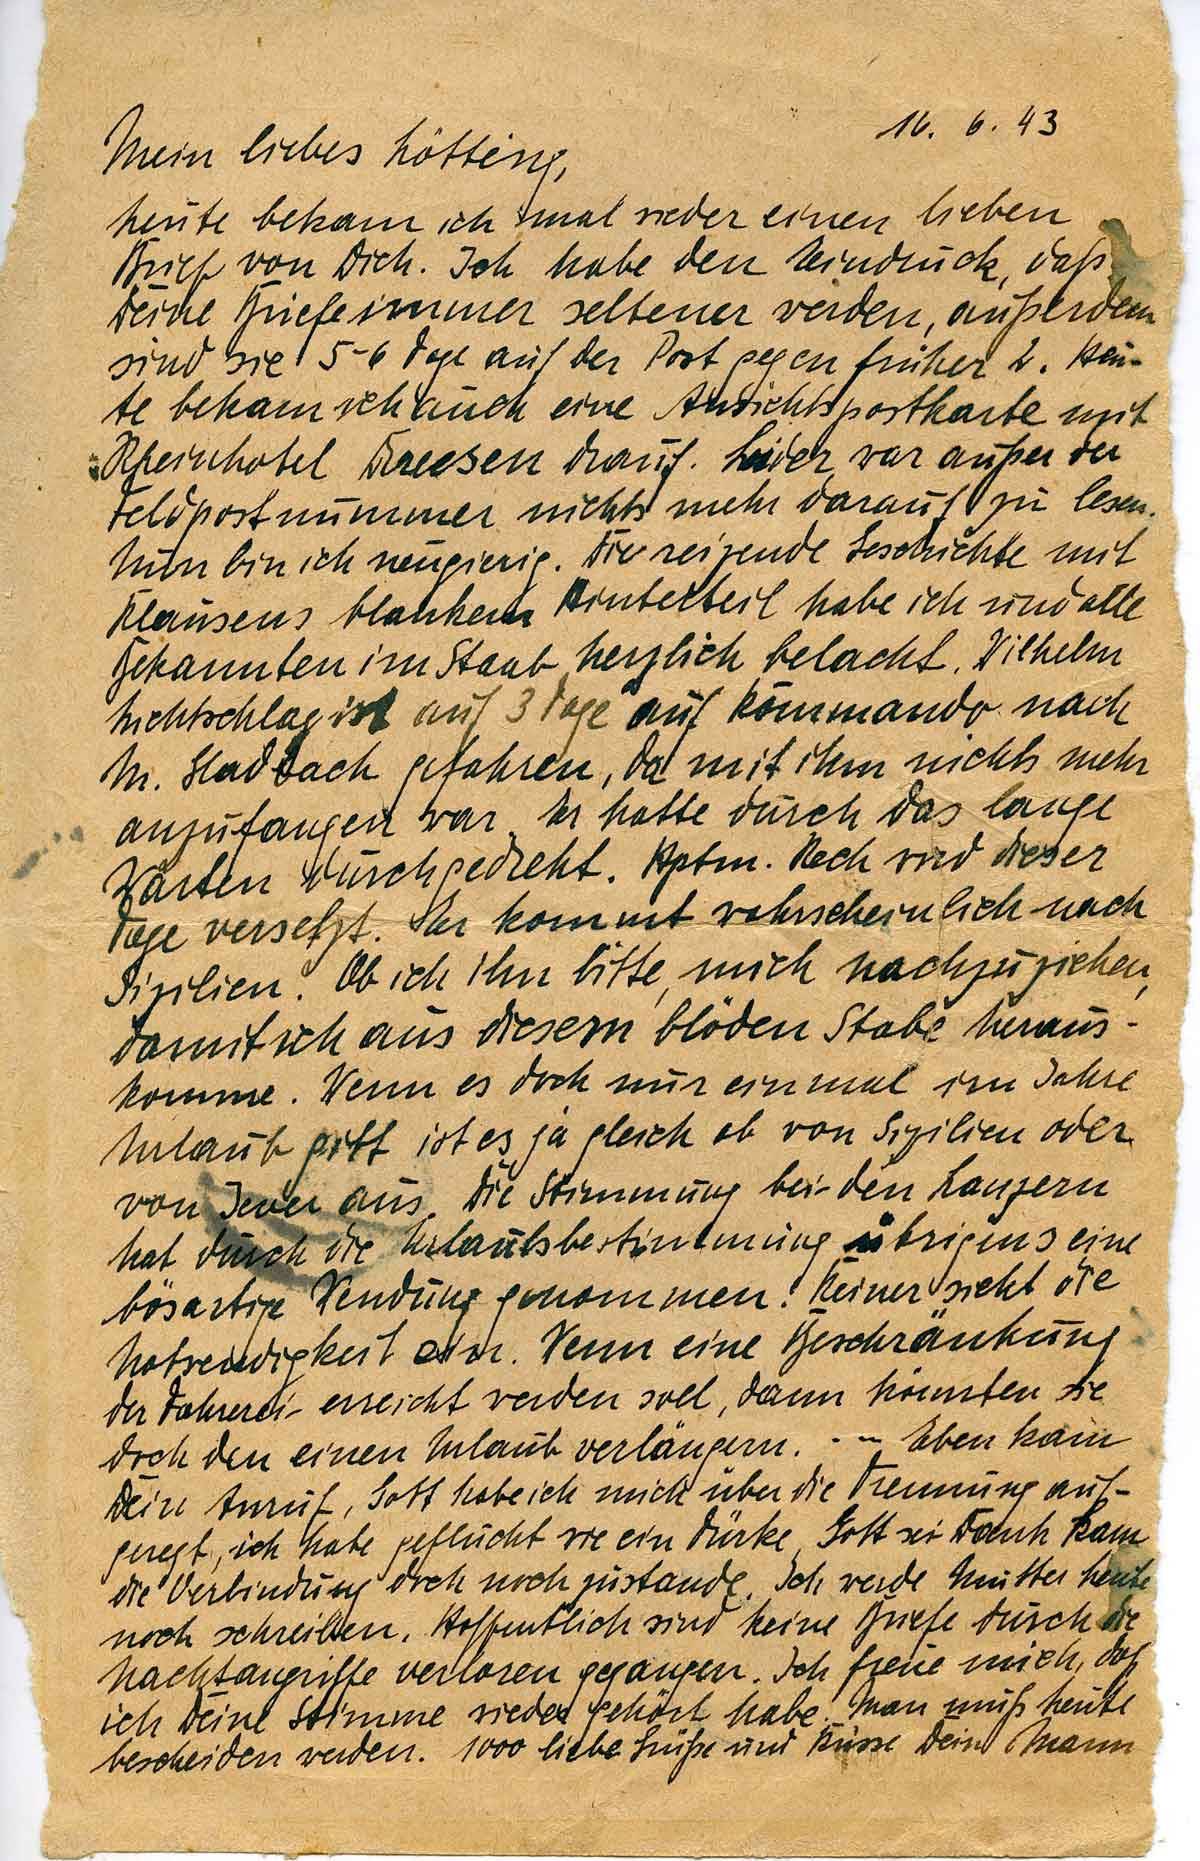 16. 6. 43
Mein liebes Lötting,
heute bekam ich mal wieder einen lieben
Brief von Dir. Ich habe den Eindruck, daß
Deine Briefe immer seltener werden, außerdem
sind sie 5-6 Tage auf der Post gegen früher 2. Heu-
te bekam ich auch eine Ansichtspostkarte mit
Rheinhotel Dreesen drauf. Leider war außer der
Feldpostnummer nichts mehr darauf zu lesen.
Nun bin ich neugierig. Die reizende Geschichte mit
Klausens blankem Hinterteil habe ich und alle
Bekannten im Staub herzlich belacht. Wilhelm
ist auf 3 Tage auf Kommando nach
M. Gladbach gefahren, da mit ihm nichts mehr
anzufangen war. Er hatte durch das lange
Warten durchgedreht. Hptm. wird dieser
Tage versetzt. Er kommt wahrscheinlich nach
Sizilien. Ob ich ihn bitte, mich nachzuziehen,
damit ich aus diesem blöden Stabe heraus-
komme. Wenn es doch nur einmal im Jahre
Urlaub gibt ist es ja gleich ob von Sizilien oder
von Jever aus. Die Stimmung bei den Lanzern
hat durch die Urlaubsbestimmung übrigens eine
bösartige Wendung genommen. Keiner sieht die
Notwendigkeit ein. Wenn eine Beschränkung
der Fahrerei erreicht werden soll, dann könnten sie
doch den einen Urlaub verlängern. -- Eben kam
Dein Anruf, Gott habe ich mich über die Trennung auf-
geregt, ich habe geflucht wie ein Türke. Gott sei Dank kam
die Verbindung doch noch zustande. Ich werde Mutter heute
noch schreiben. Hoffentlich sind keine Briefe durch die
Nachtangriffe verloren gegangen. Ich freue mich, daß
ich Deine Stimme wieder gehört habe. Man muß heute
bescheiden werden. 1000 liebe Grüße und Küsse Dein Mann